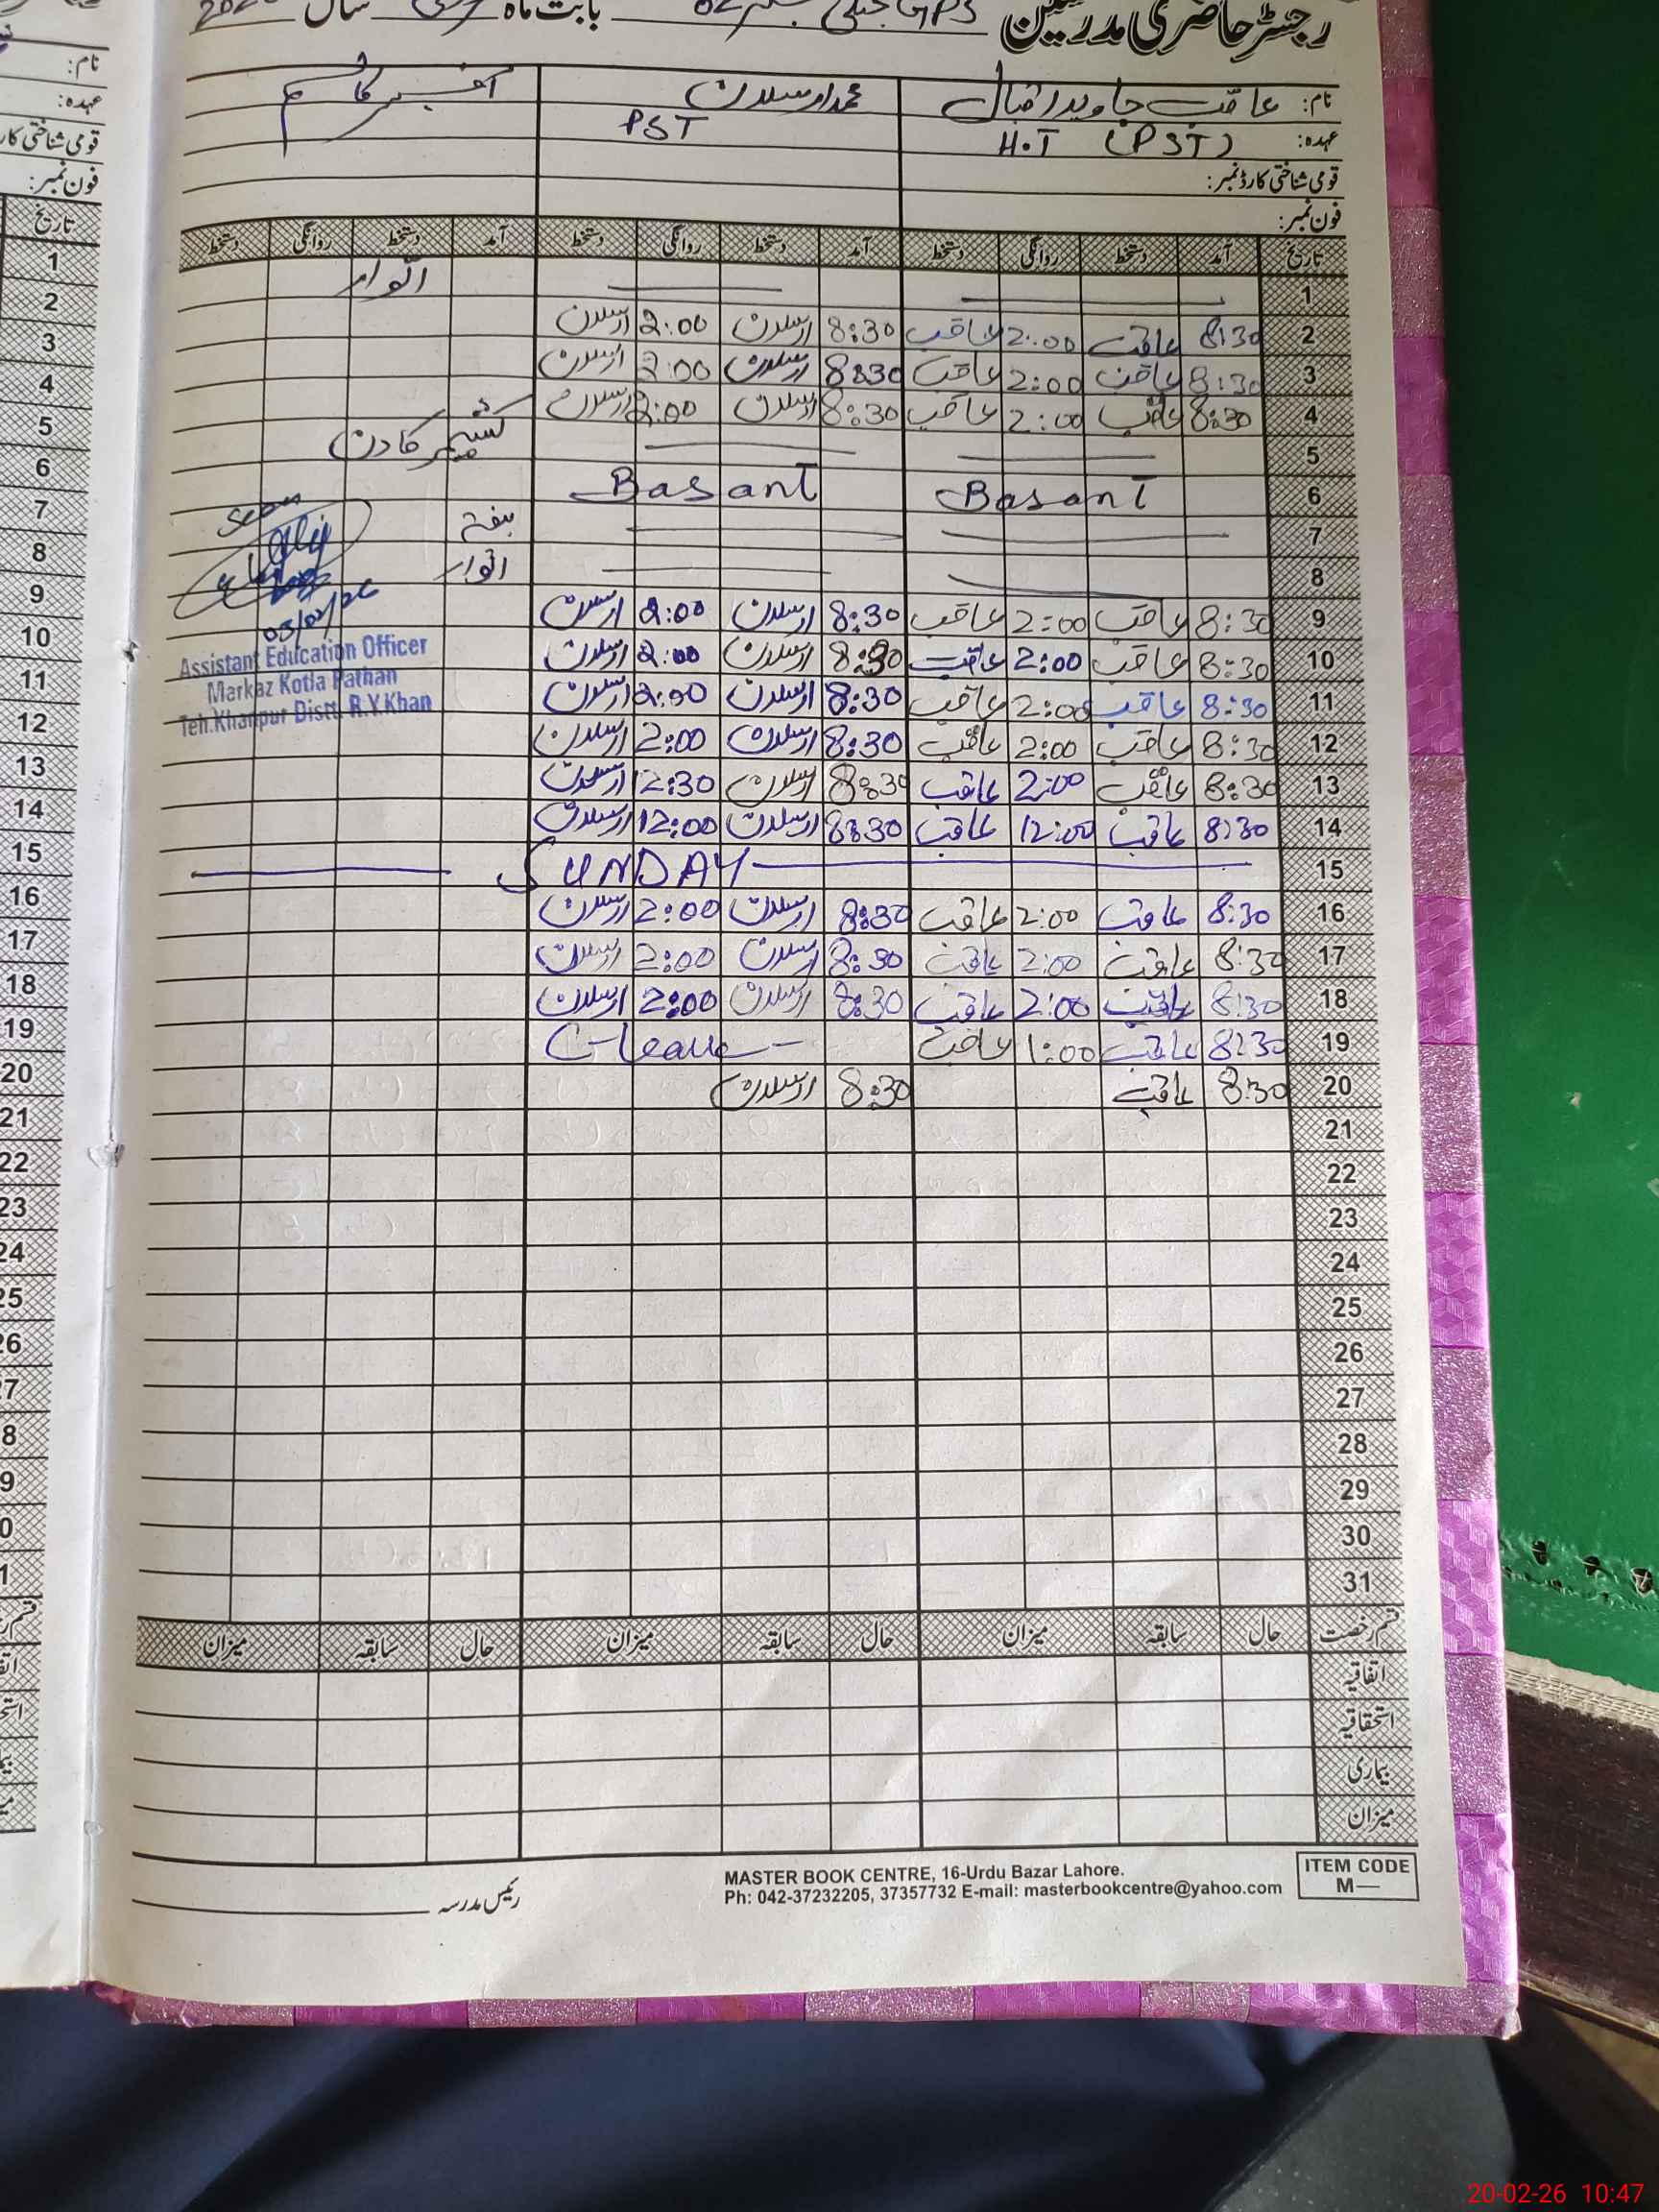 رجسٹر حاضری مدرسین GPS بابت ماہ سال
نام: عاقب جاوید اقبال محمد ارسلان آفیسر کالم
عہدہ: H.T (PST) PST
قومی شناختی کارڈ نمبر:
فون نمبر:
تاریخ آمد دستخط روانگی دستخط آمد دستخط روانگی دستخط آمد دستخط روانگی دستخط
1 اتوار
2 8:30 عاقب 2:00 عاقب 8:30 ارسلان 2:00 ارسلان
3 8:30 عاقب 2:00 عاقب 8:30 ارسلان 2:00 ارسلان
4 8:30 عاقب 2:00 عاقب 8:30 ارسلان 2:00 ارسلان
5 کشمیر کا دن
6 Basant Basant
7 ہفتہ
8 اتوار
Seen
03/02/26
Assistant Education Officer
Markaz Kotla Pathan
Teh.Khanpur Distt. R.Y.Khan
9 8:30 عاقب 2:00 عاقب 8:30 ارسلان 2:00 ارسلان
10 8:30 عاقب 2:00 عاقب 8:30 ارسلان 2:00 ارسلان
11 8:30 عاقب 2:00 عاقب 8:30 ارسلان 2:00 ارسلان
12 8:30 عاقب 2:00 عاقب 8:30 ارسلان 2:00 ارسلان
13 8:30 عاقب 2:00 عاقب 8:30 ارسلان 12:30 ارسلان
14 8:30 عاقب 12:00 عاقب 8:30 ارسلان 12:00 ارسلان
15 SUNDAY
16 8:30 عاقب 2:00 عاقب 8:30 ارسلان 2:00 ارسلان
17 8:30 عاقب 2:00 عاقب 8:30 ارسلان 2:00 ارسلان
18 8:30 عاقب 2:00 عاقب 8:30 ارسلان 2:00 ارسلان
19 8:30 عاقب 1:00 عاقب C-leave-
20 8:30 عاقب 8:30 ارسلان
21
22
23
24
25
26
27
28
29
30
31
قسم رخصت حال سابقہ میزان حال سابقہ میزان حال سابقہ میزان
اتفاقیہ
استحقاقیہ
بیماری
میزان
رئیس مدرسہ
MASTER BOOK CENTRE, 16-Urdu Bazar Lahore.
Ph: 042-37232205, 37357732 E-mail: masterbookcentre@yahoo.com
ITEM CODE
M—
نام:
عہدہ:
قومی شناختی کار
فون نمبر:
تاریخ
1
2
3
4
5
6
7
8
9
10
11
12
13
14
15
16
17
18
19
20
21
22
23
24
25
26
27
8
9
0
1
20-02-26 10:47